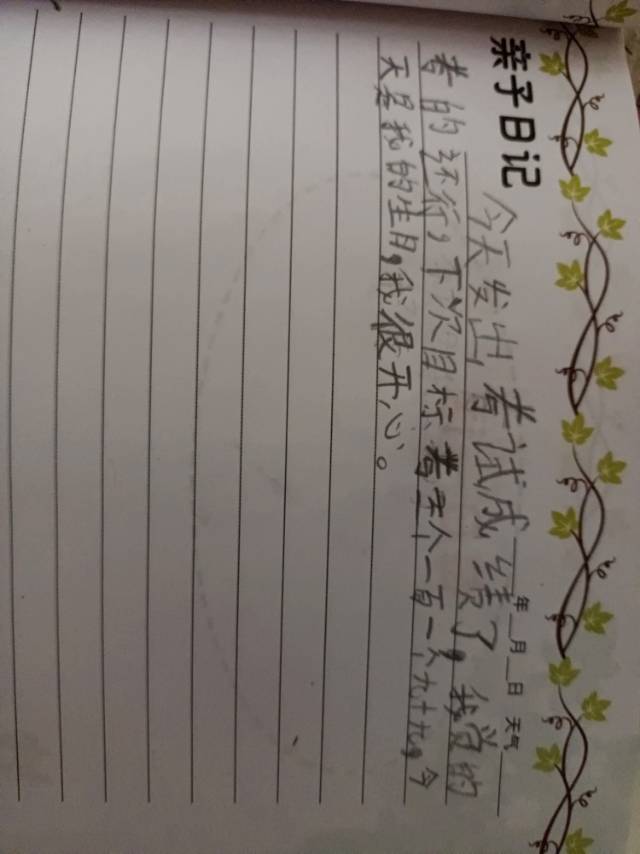 亲子日记
年 月 日 天气
今天发出考试成绩了，我觉的
考的还行，下次目标考 个一百一个九十九，今
天是我的生日，我很开心。